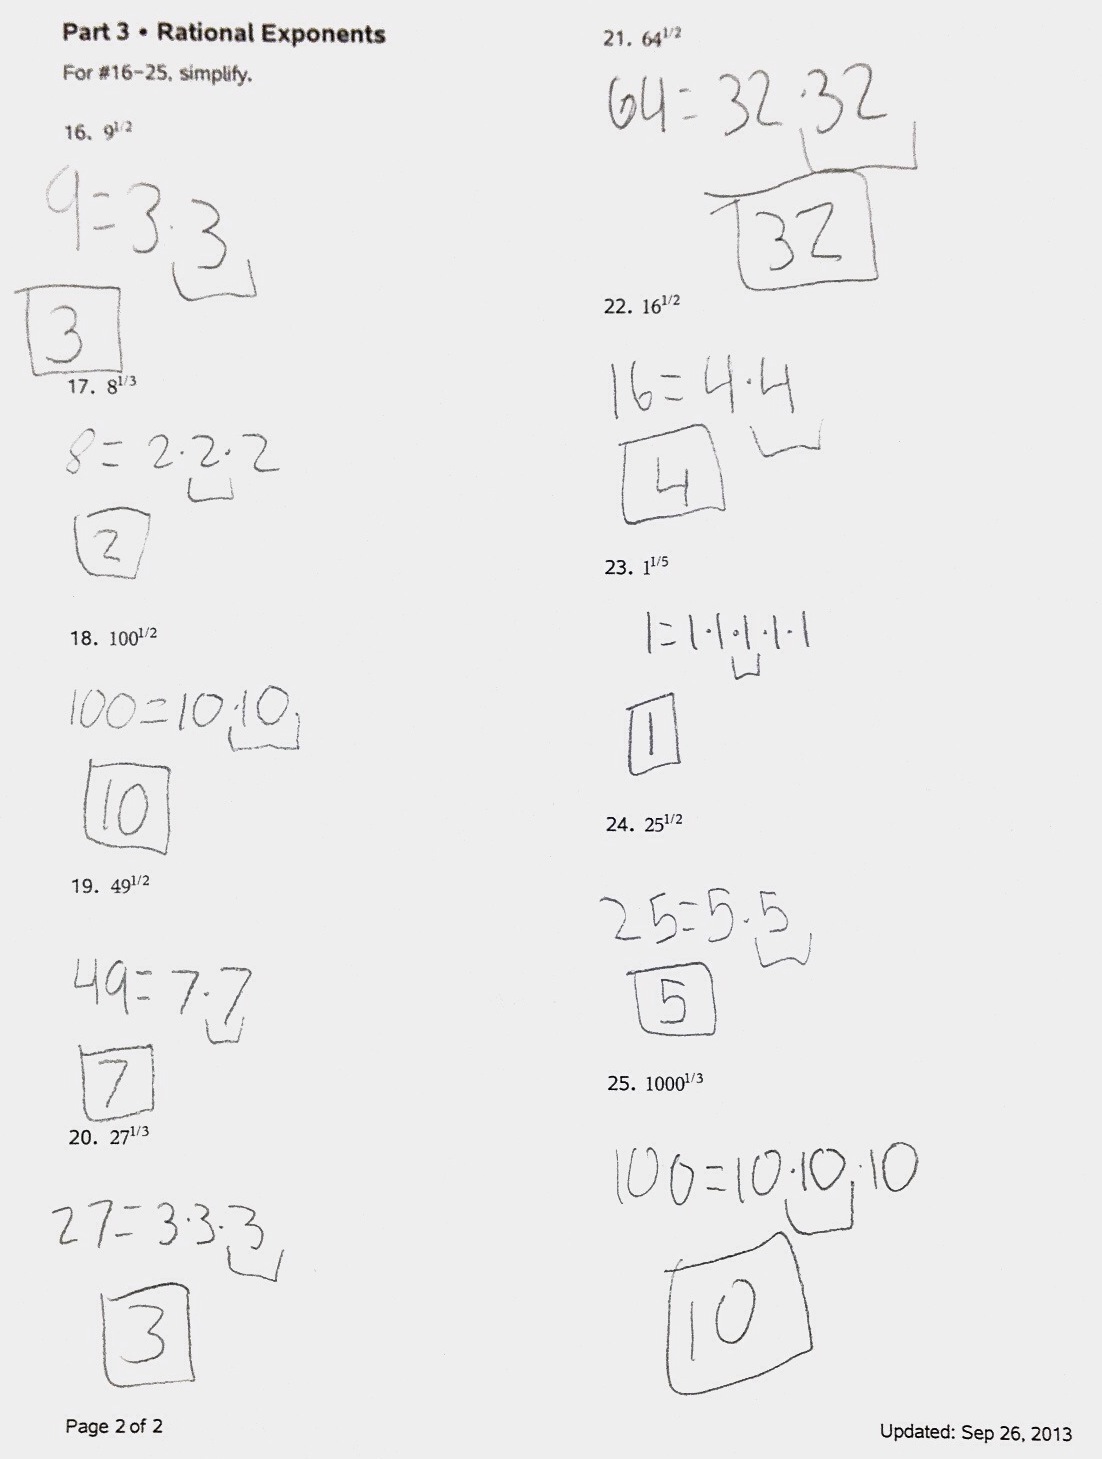 Part 3 • Rational Exponents
For #16-25, simplify.
16. 9^{1/2}
9=3·3
3
17. 8^{1/3}
8= 2·2·2
2
18. 100^{1/2}
100=10·10
10
19. 49^{1/2}
49=7·7
7
20. 27^{1/3}
27=3·3·3
3
Page 2 of 2
21. 64^{1/2}
64=32·32
32
22. 16^{1/2}
16=4·4
4
23. 1^{1/5}
1=1·1·1·1·1
1
24. 25^{1/2}
25=5·5
5
25. 1000^{1/3}
100=10·10·10
10
Updated: Sep 26, 2013